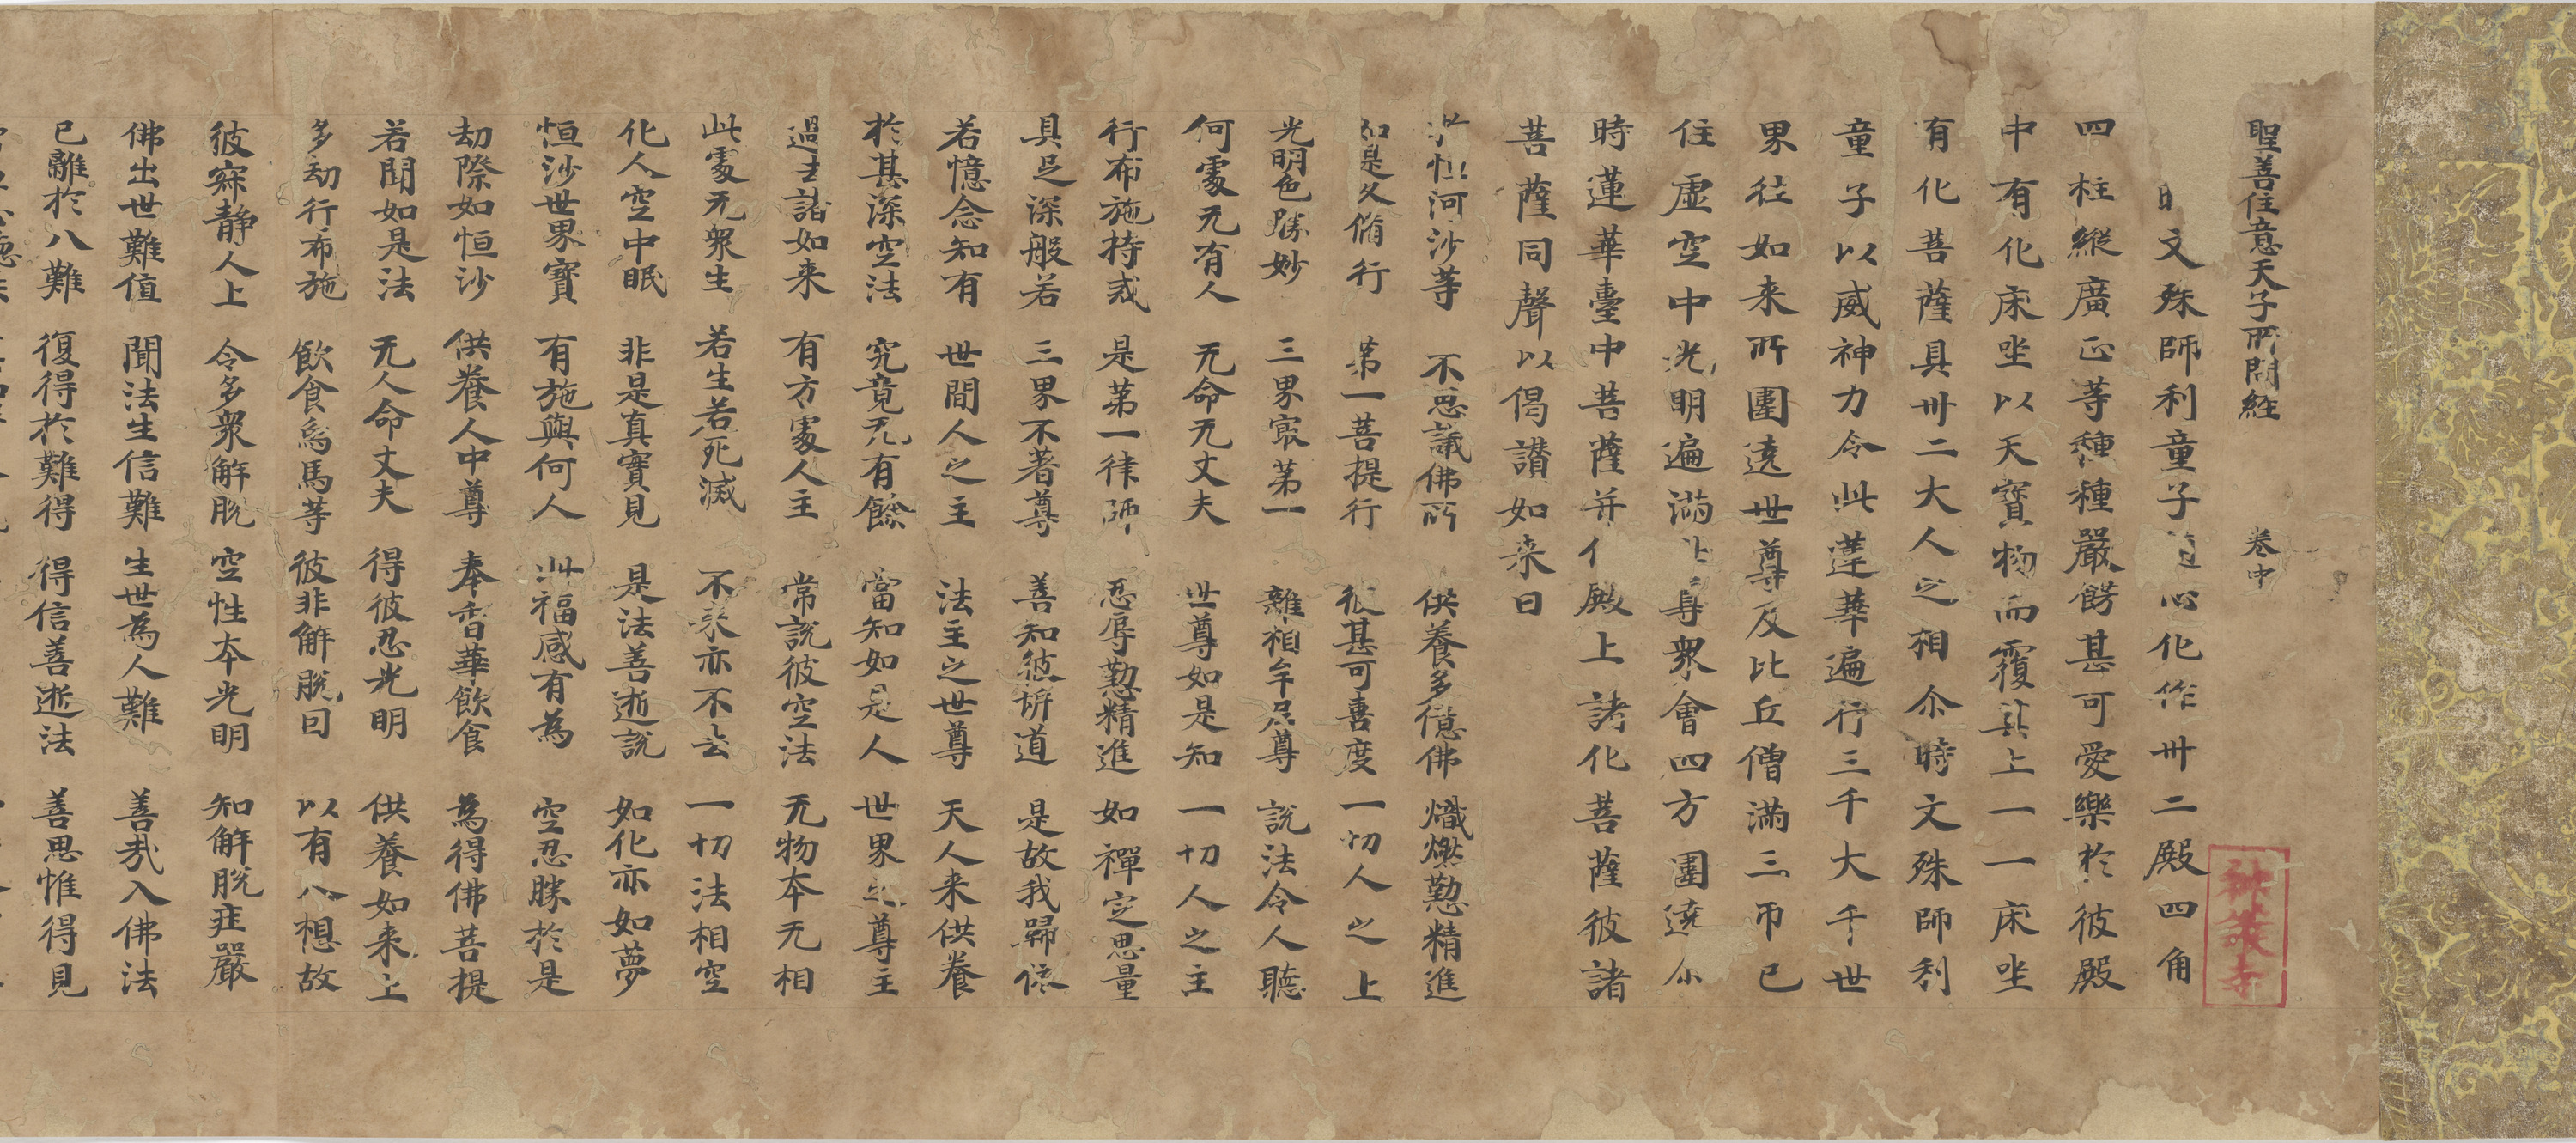 聖善住意天子所問經 卷中
文殊師利童子 心化作卅二殿四角
四柱縱廣正等種種嚴餝甚可愛樂於彼殿
中有化床坐以天寶物而覆其上一一床坐
有化菩薩具卅二大人之相尒時文殊師利
童子以威神力令此蓮華遍行三千大千世
界往如来所圍遶世尊及比丘僧滿三帀已
住虛空中光明遍滿 尊衆會四方圍遶尒
時蓮華臺中菩薩并 殿上諸化菩薩彼諸
菩薩同聲以偈讃如来曰
恒河沙等 不思議佛所 供養多億佛 熾燃勤精進
如是久脩行 第一菩提行 彼甚可喜度 一切人之上
光明色勝妙 三界㝡第一 離相牟尼尊 說法令人聽
何處无有人 无命无丈夫 世尊如是知 一切人之主
行布施持戒 是第一律師 忍辱勤精進 如禪定思量
具足深般若 三界不著尊 善知彼𣃁道 是故我歸依
若憶念知有 世間人之主 法主之世尊 天人来供養
於甚深空法 究竟无有餘 當知如是人 世界 尊主
過去諸如来 有方處人主 常說彼空法 无物本无相
此處无衆生 若生若死滅 不来亦不去 一切法相空
化人空中眠 非是真實見 是法善逝說 如化亦如夢
恒沙世界寶 有施與何人 此福感有為 空忍勝於是
劫際如恒沙 供養人中尊 奉香華飲食 為得佛菩提
若聞如是法 无人命丈夫 得彼忍光明 供養如来上
多劫行布施 飲食象馬等 彼非解脫曰 以有人想故
彼寂静人上 令多衆解脫 空性本光明 知解脫莊嚴
佛出世難值 聞法生信難 生世為人難 善哉入佛法
已離於八難 復得於難得 得信善逝法 善思惟得見